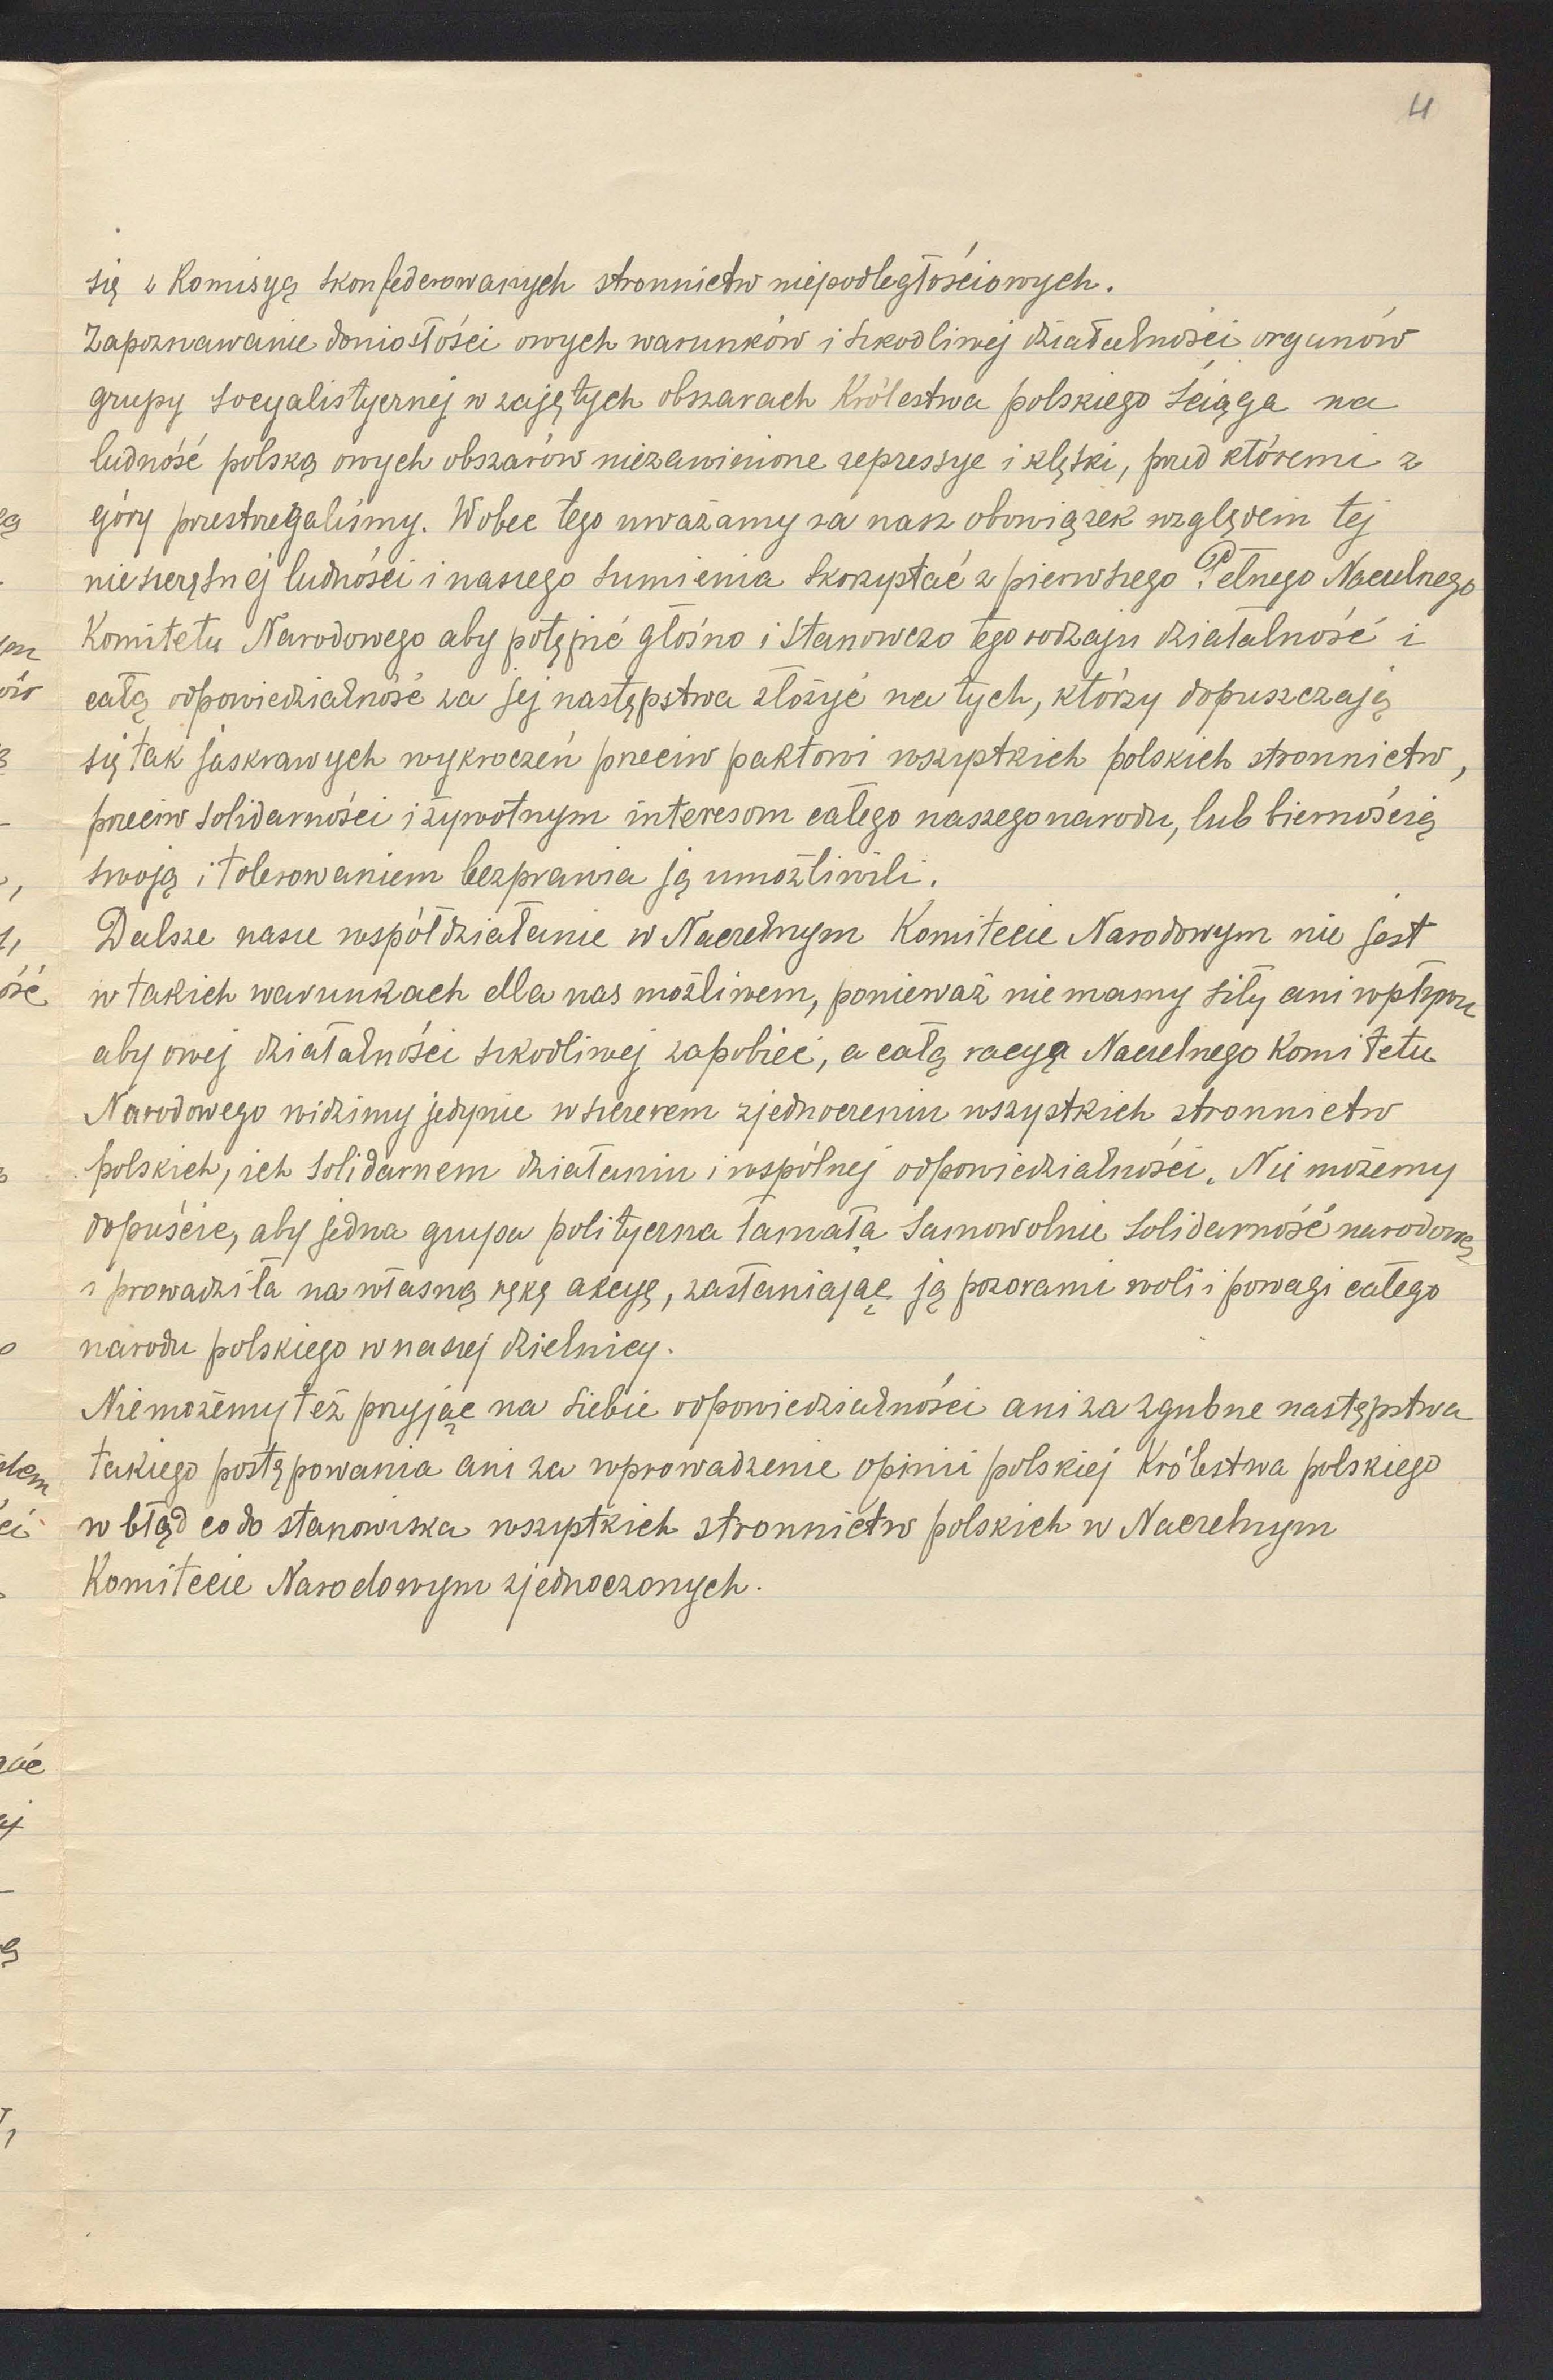 4
się z Komisyą skonfederowanych stronnictw niepodległościowych.
Zapoznawanie doniosłości owych warunków i szkodliwej działalności organów
grupy socyalistycznej w zajętych obszarach Królestwa polskiego ściąga na
ludność polską owych obszarów niezawinione represye i klęski, przed któremi z
góry przestrzegaliśmy. Wobec tego uważamy za nasz obowiązek względem tej
nieszczęsnej ludności i naszego sumienia skorzystać z pierwszego Pełnego Naczelnego
Komitetu Narodowego aby potępić głośno i stanowczo tego rodzaju działalność i
całą odpowiedzialność za jej następstwa złożyć na tych, którzy dopuszczają
się tak jaskrawych wykroczeń przeciw paktowi wszystkich polskich stronnictw,
przeciw solidarności i żywotnym interesom całego naszego narodu, lub biernością
swoją i tolerowaniem bezprawia ją umożliwili.
Dalsze nasze współdziałanie w Naczelnym Komitecie Narodowym nie jest
w takich warunkach dla nas możliwem, ponieważ nie mamy siły ani wpływu
aby owej działalności szkodliwej zapobiec, a całą racyę Naczelnego Komitetu
Narodowego widzimy jedynie w szczerem zjednoczeniu wszystkich stronnictw
polskich, ich solidarnem działaniu i wspólnej odpowiedzialności. Nie możemy
dopuścić, aby jedna grupa polityczna łamała samowolnie solidarność narodową
i prowadziła na własną rękę akcyę, zasłaniając ją pozorami woli i powagi całego
narodu polskiego w naszej dzielnicy.
Nie możemy też przyjąć na siebie odpowiedzialności ani za zgubne następstwa
takiego postępowania ani za wprowadzenie opinii polskiej Królestwa polskiego
w błąd co do stanowiska wszystkich stronnictw polskich w Naczelnym
Komitecie Narodowym zjednoczonych.